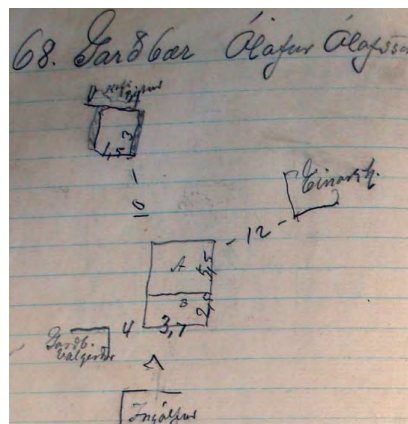 68. Garðbær Ólafur Ólafsson
3
4,5
10
Einarsh.
- 12 -
A
5,5
B
2,9
3,7
4
Garðb.
Valgerðar
Ingólfur